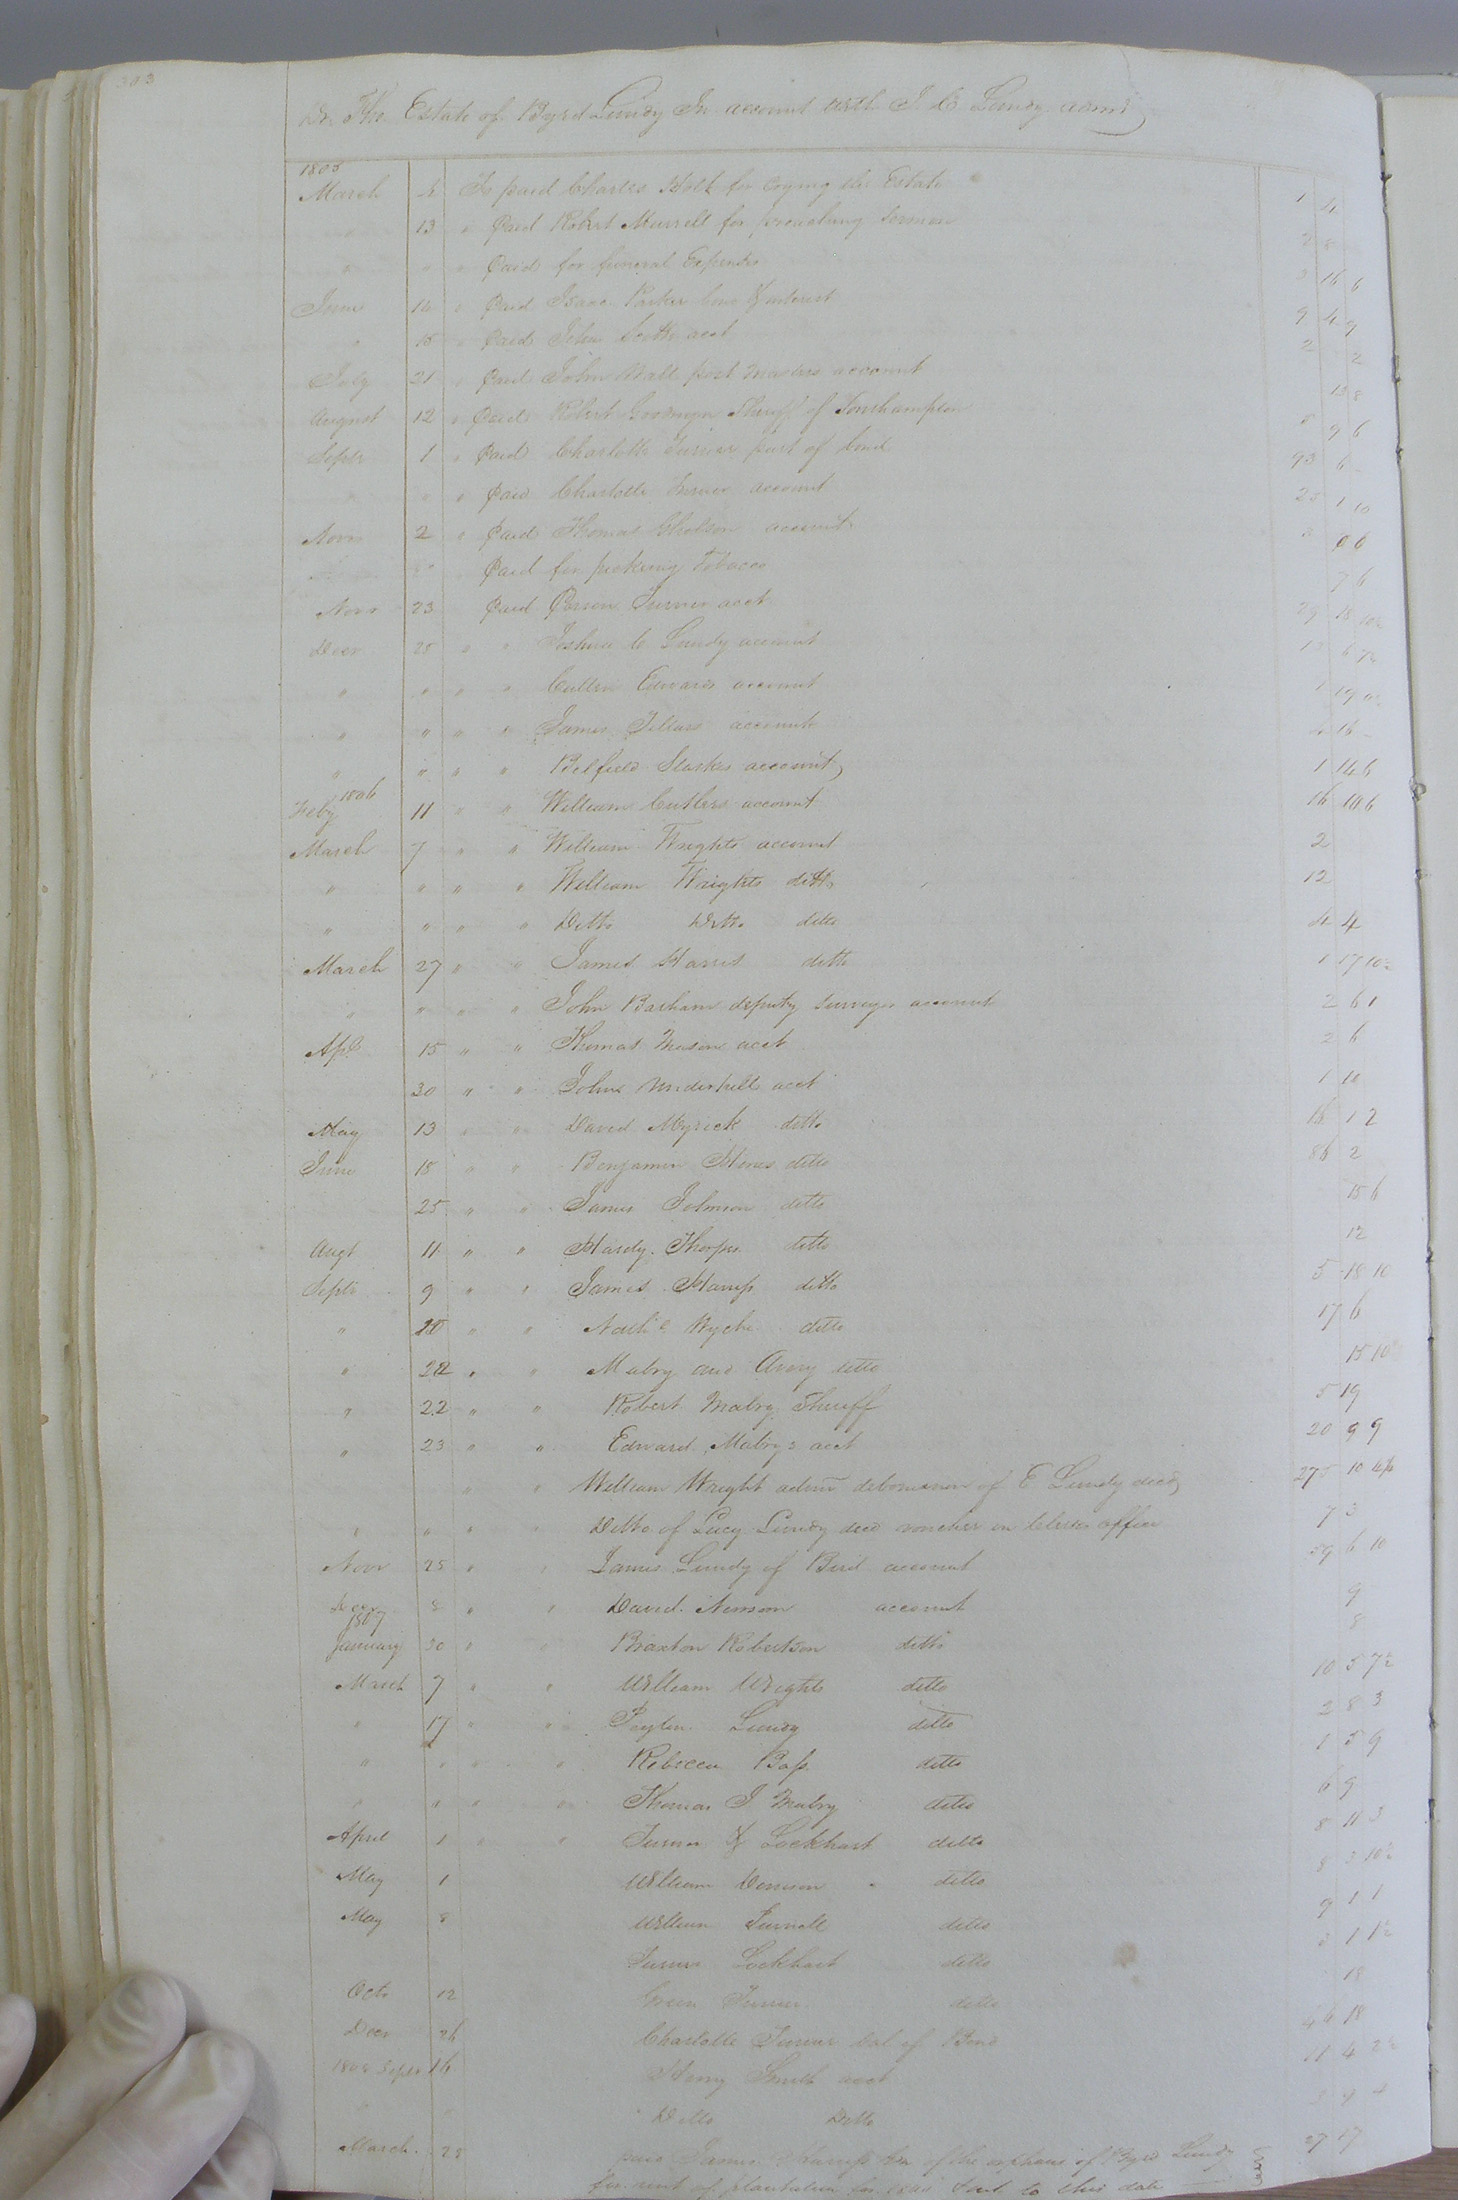 303
Dr. The Estate of Byrd Lundy In account with J. C. Lundy admr
1805
March To paid Charles Holt for Crying the Estate 1 4
" 13 " Paid Robert Murrell for preaching Sermon
" " " Paid for funeral Expences 3 16 6
June " Paid Isaac Parker bond & interest 9 4 9
" 15 " Paid John Scotts acct 2 2
July 21 " Paid John Hall post Masters account 13 8
August 12 " Paid Robert Goodwyn Sheriff of Southampton 9 6
Septr 1 " Paid Charlotte Turner part of bond 93 6
" " " Paid Charlotte Turner account 25 1 10
Novr 2 " Paid Thomas account
Paid for picking Tobacco 7 6
Novr 23 Paid Person Turner acct 29 18
Decr 25 " " Joshua C Lundy account
" " " " Cullen Edwards account
" " " " James Tillars account 16
" " " " Belfield Starkes account 1 14 6
1806
Feby 11 " " William Cutlers account 16 10 6
March 7 " " William Wrights account 2
" " " " William Wrights ditto 12
" " " " Ditto Ditto ditto 4 4
March 27 " " James Harris ditto 1 17 10½
" " " " John Barham deputy surveyor account 2 6 1
Apl 15 " " Thomas Mason acct 2 6
30 " " John Underhill acct 1 10
May 13 " " David Myrick ditto 16 1 2
June 18 " " Benjamin Hines ditto 86 2
25 " " James Johnson ditto 15 6
Augt 11 " " Hardy Thorps ditto 12
Septr 9 " " James Stamp ditto 5 18 10
" " " Nathl Wyche ditto 17 6
" 22 " " Mabry and Avery ditto 15 10
" 22 " " Robert Mabry Sheriff 5 19
" 23 " " Edward Mabrys acct 20 9 9
" " William Wright admr debonison of E Lundy decd 275 10
" " " " Ditto of Lucy Lundy decd voucher in Clerks office 7 3
Novr 25 " " James Lundy of Bird account 59 6 10
Decr 8 " " David account 9
1807
January 30 " " Braxton Robertson ditto 8
March 7 " " William Wrights ditto 10 5 7½
" 17 " " Peyton Lundy ditto 2 8 3
" " " " Rebecca Bass ditto 1 5 9
" " " " Thomas J. Mabry ditto 6 9
April 1 " " Turner & Lockhart ditto 8 11 3
May 1 William ditto 8 3 10½
May 8 William ditto 9 1 1
Turner Lockhart ditto 3 1 1½
Octr 12 Green Turner ditto 18
Decr 26 Charlotte Turner bal of Bond 46 18
Septr 16 Henry Smith acct 11 4 2½
" Ditto Ditto
March 28 paid James of the orphans of Byrd Lundy 27 17
for rent of plantation for to this date